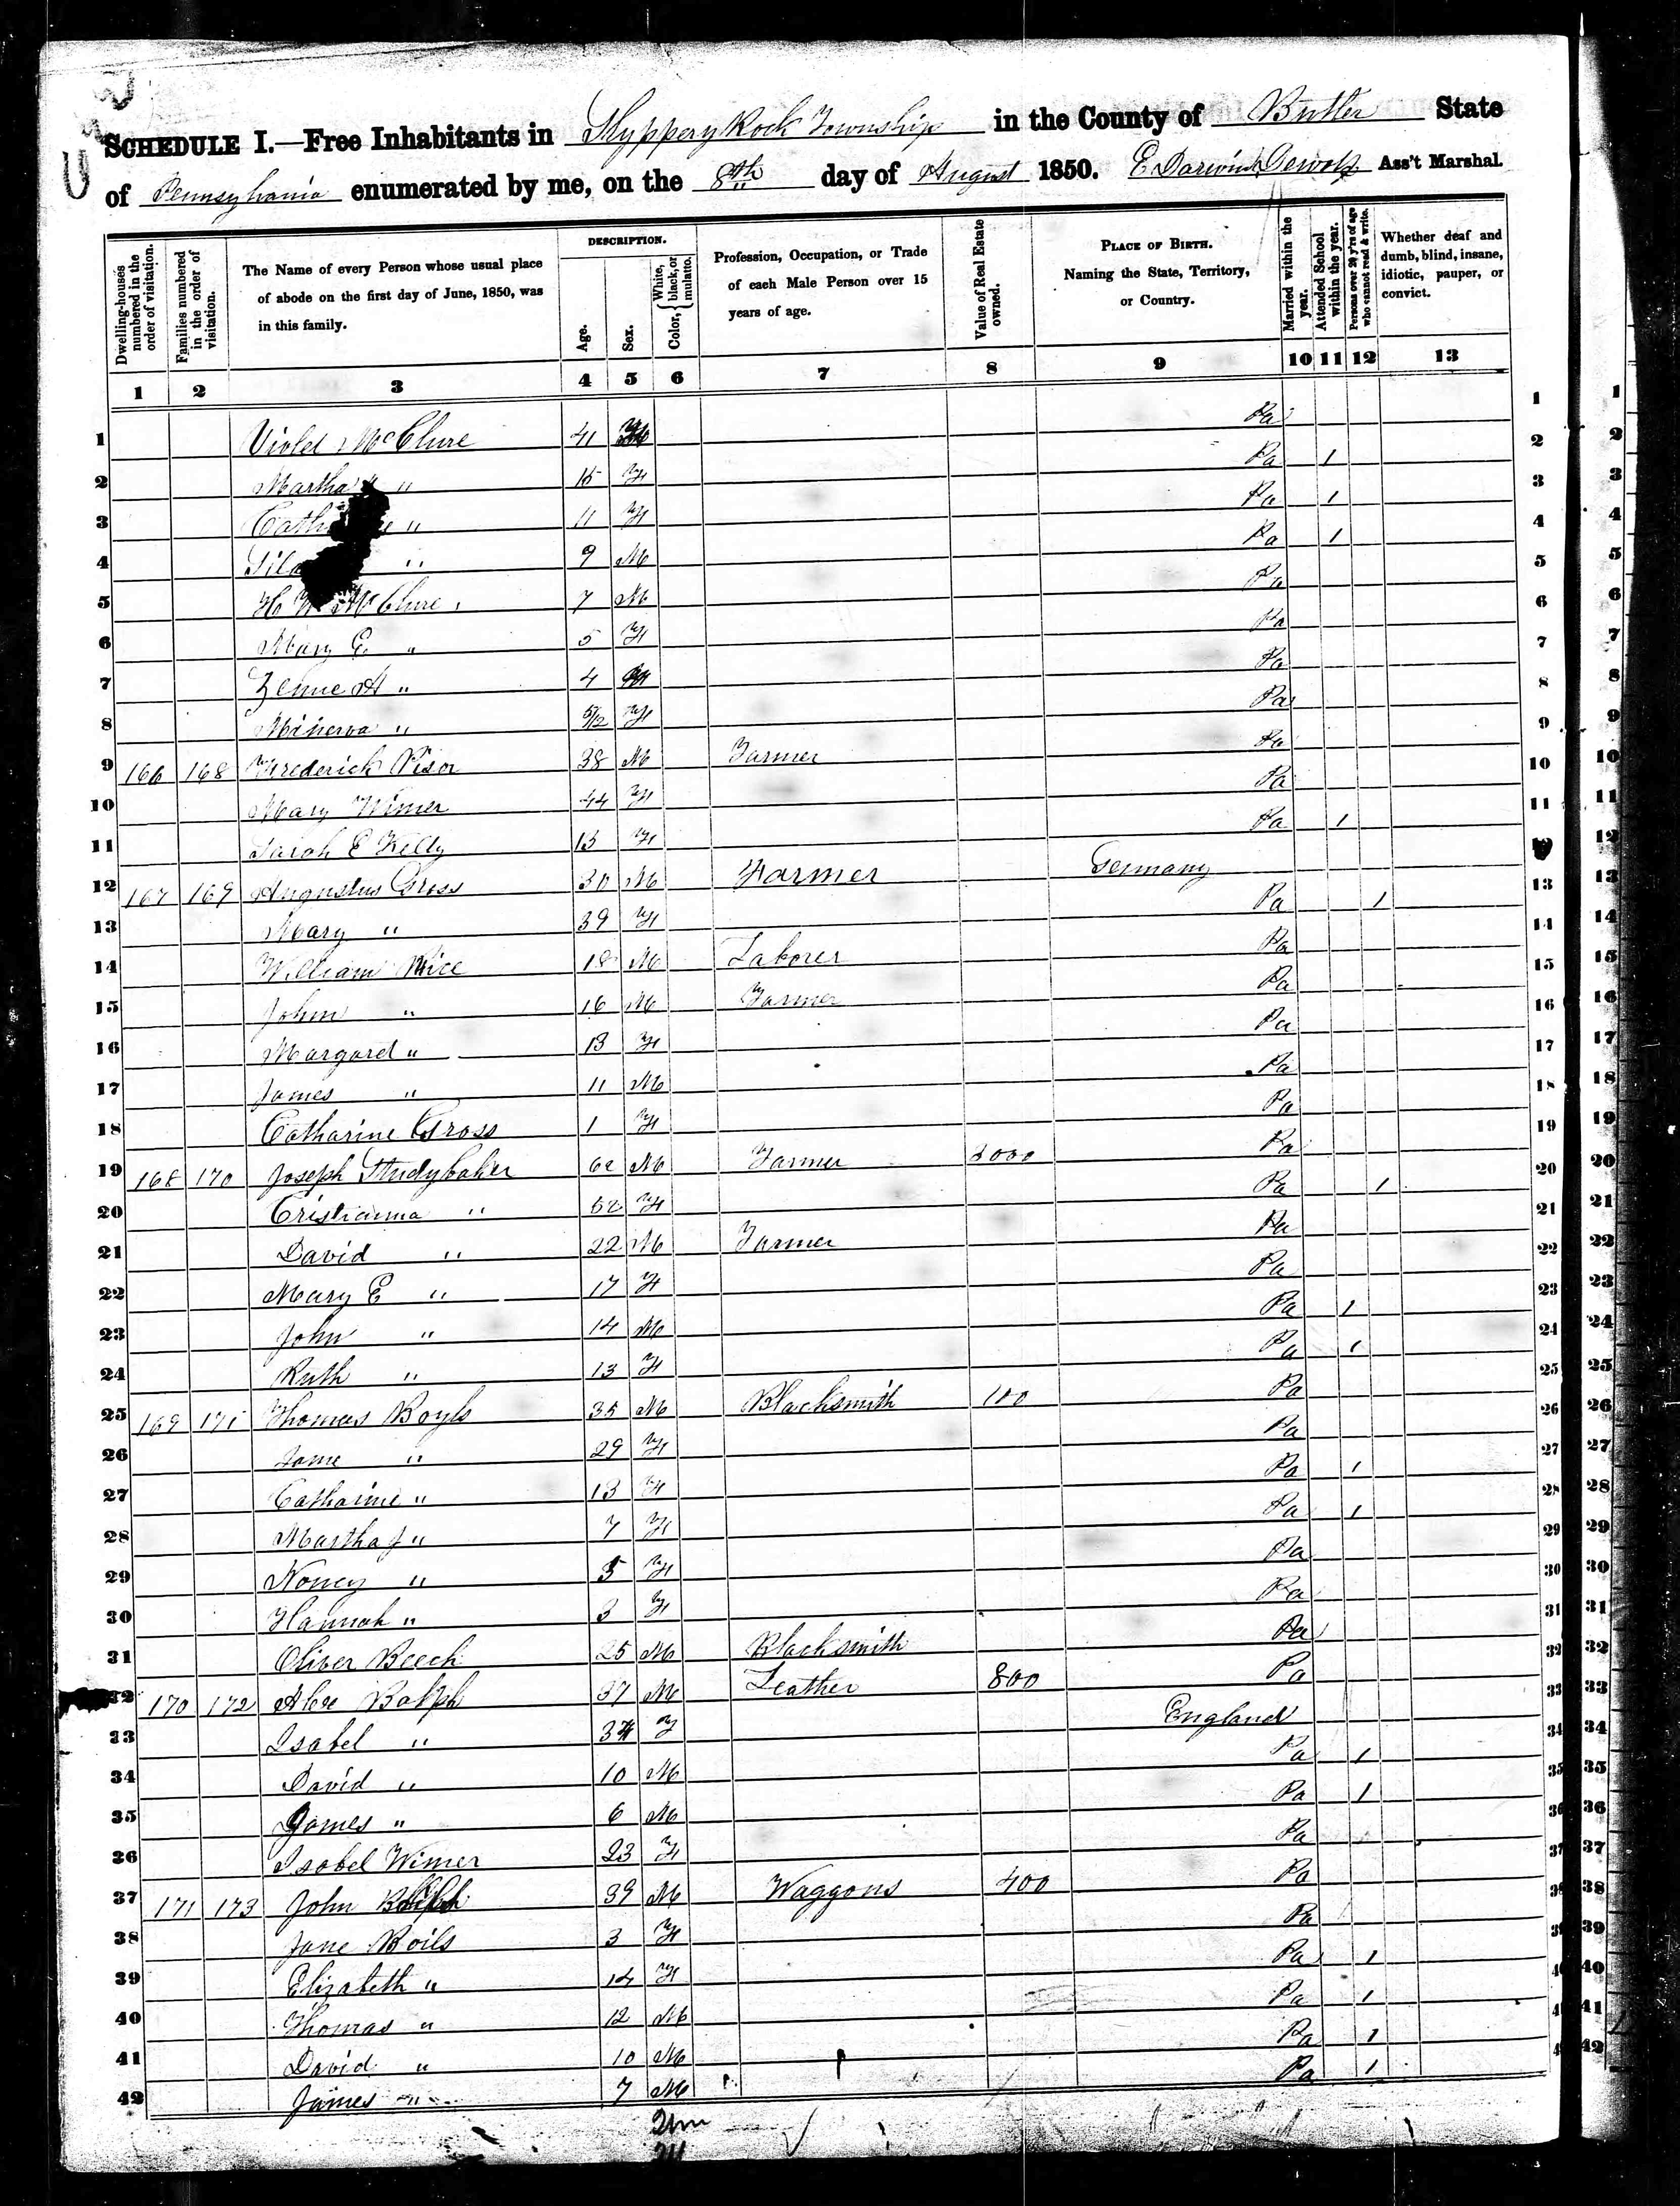 SCHEDULE I.—Free Inhabitants in Slyppery Rock Township in the County of Butler State
of Pennsylvania enumerated by me, on the 8th day of August 1850. E Darwin Dewolf Ass't Marshal.
Dwelling-houses numbered in the order of visitation.
Families numbered in the order of visitation.
The Name of every Person whose usual place of abode on the first day of June, 1850, was in this family.
DESCRIPTION.
Age.
Sex.
Color, { White, black, or mulatto.
Profession, Occupation, or Trade of each Male Person over 15 years of age.
Value of Real Estate owned.
PLACE OF BIRTH. Naming the State, Territory, or Country.
Married within the year.
Attended School within the year.
Persons over 20 y'rs of age who cannot read & write.
Whether deaf and dumb, blind, insane, idiotic, pauper, or convict.
1 2 3 4 5 6 7 8 9 10 11 12 13
1 Violet McClure 41 Pa 1
2 Martha " 15 F Pa 1 2
3 " 11 F Pa 1 3
4 " 9 M Pa 1 4
5 H McClure 7 M Pa 5
6 Mary E " 5 F Pa 6
7 A " 4 Pa 7
8 Minerva " 5/12 F Pa 8
9 166 168 Frederick Pisor 38 M Farmer Pa 9
10 Mary Wimer 44 F Pa 10
11 Sarah E Kelly 13 F Pa 1 11
12 167 169 Augustus Gross 30 M Farmer Germany
13 Mary " 39 F Pa 1 13
14 William Rice 18 M Laborer Pa 14
15 John " 16 M Farmer Pa 15
16 Margaret " 13 F Pa 16
17 James " 11 M Pa 17
18 Catharine Gross 1 F Pa 18
19 168 170 Joseph Studybaker 62 M Farmer 3000 Pa 19
20 Cristianna " 52 F Pa 1 20
21 David " 22 M Farmer Pa 21
22 Mary E " 17 F Pa 22
23 John " 14 M Pa 1 23
24 Ruth " 13 F Pa 1 24
25 169 171 Thomas Boyls 35 M Blacksmith 100 Pa 25
26 Jane " 29 F Pa 26
27 Catharine " 13 F Pa 1 27
28 Martha J " 7 F Pa 1 28
29 Noncy " 5 F Pa 29
30 Hannah " 3 F Pa 30
31 Oliver Beech 25 M Blacksmith Pa 31
32 170 172 Alex Bolph 37 M Leather 800 Pa 32
33 Isabel " F England 33
34 David " 10 M Pa 1 34
35 James " 6 M Pa 1 35
36 Isabel Wimer 23 F Pa 36
37 171 173 John 39 M Waggons 400 Pa 37
38 Jane Boils 3 F Pa 38
39 Elizabeth " 14 F Pa 1 39
40 Thomas " 12 M Pa 1
41 David " 10 M Pa 1
42 James " 7 M Pa 1
1
2
3
4
5
6
7
8
9
10
11
12
13
14
15
16
17
18
19
20
21
22
23
24
25
26
27
28
29
30
31
32
33
34
35
36
37
38
39
40
41
42